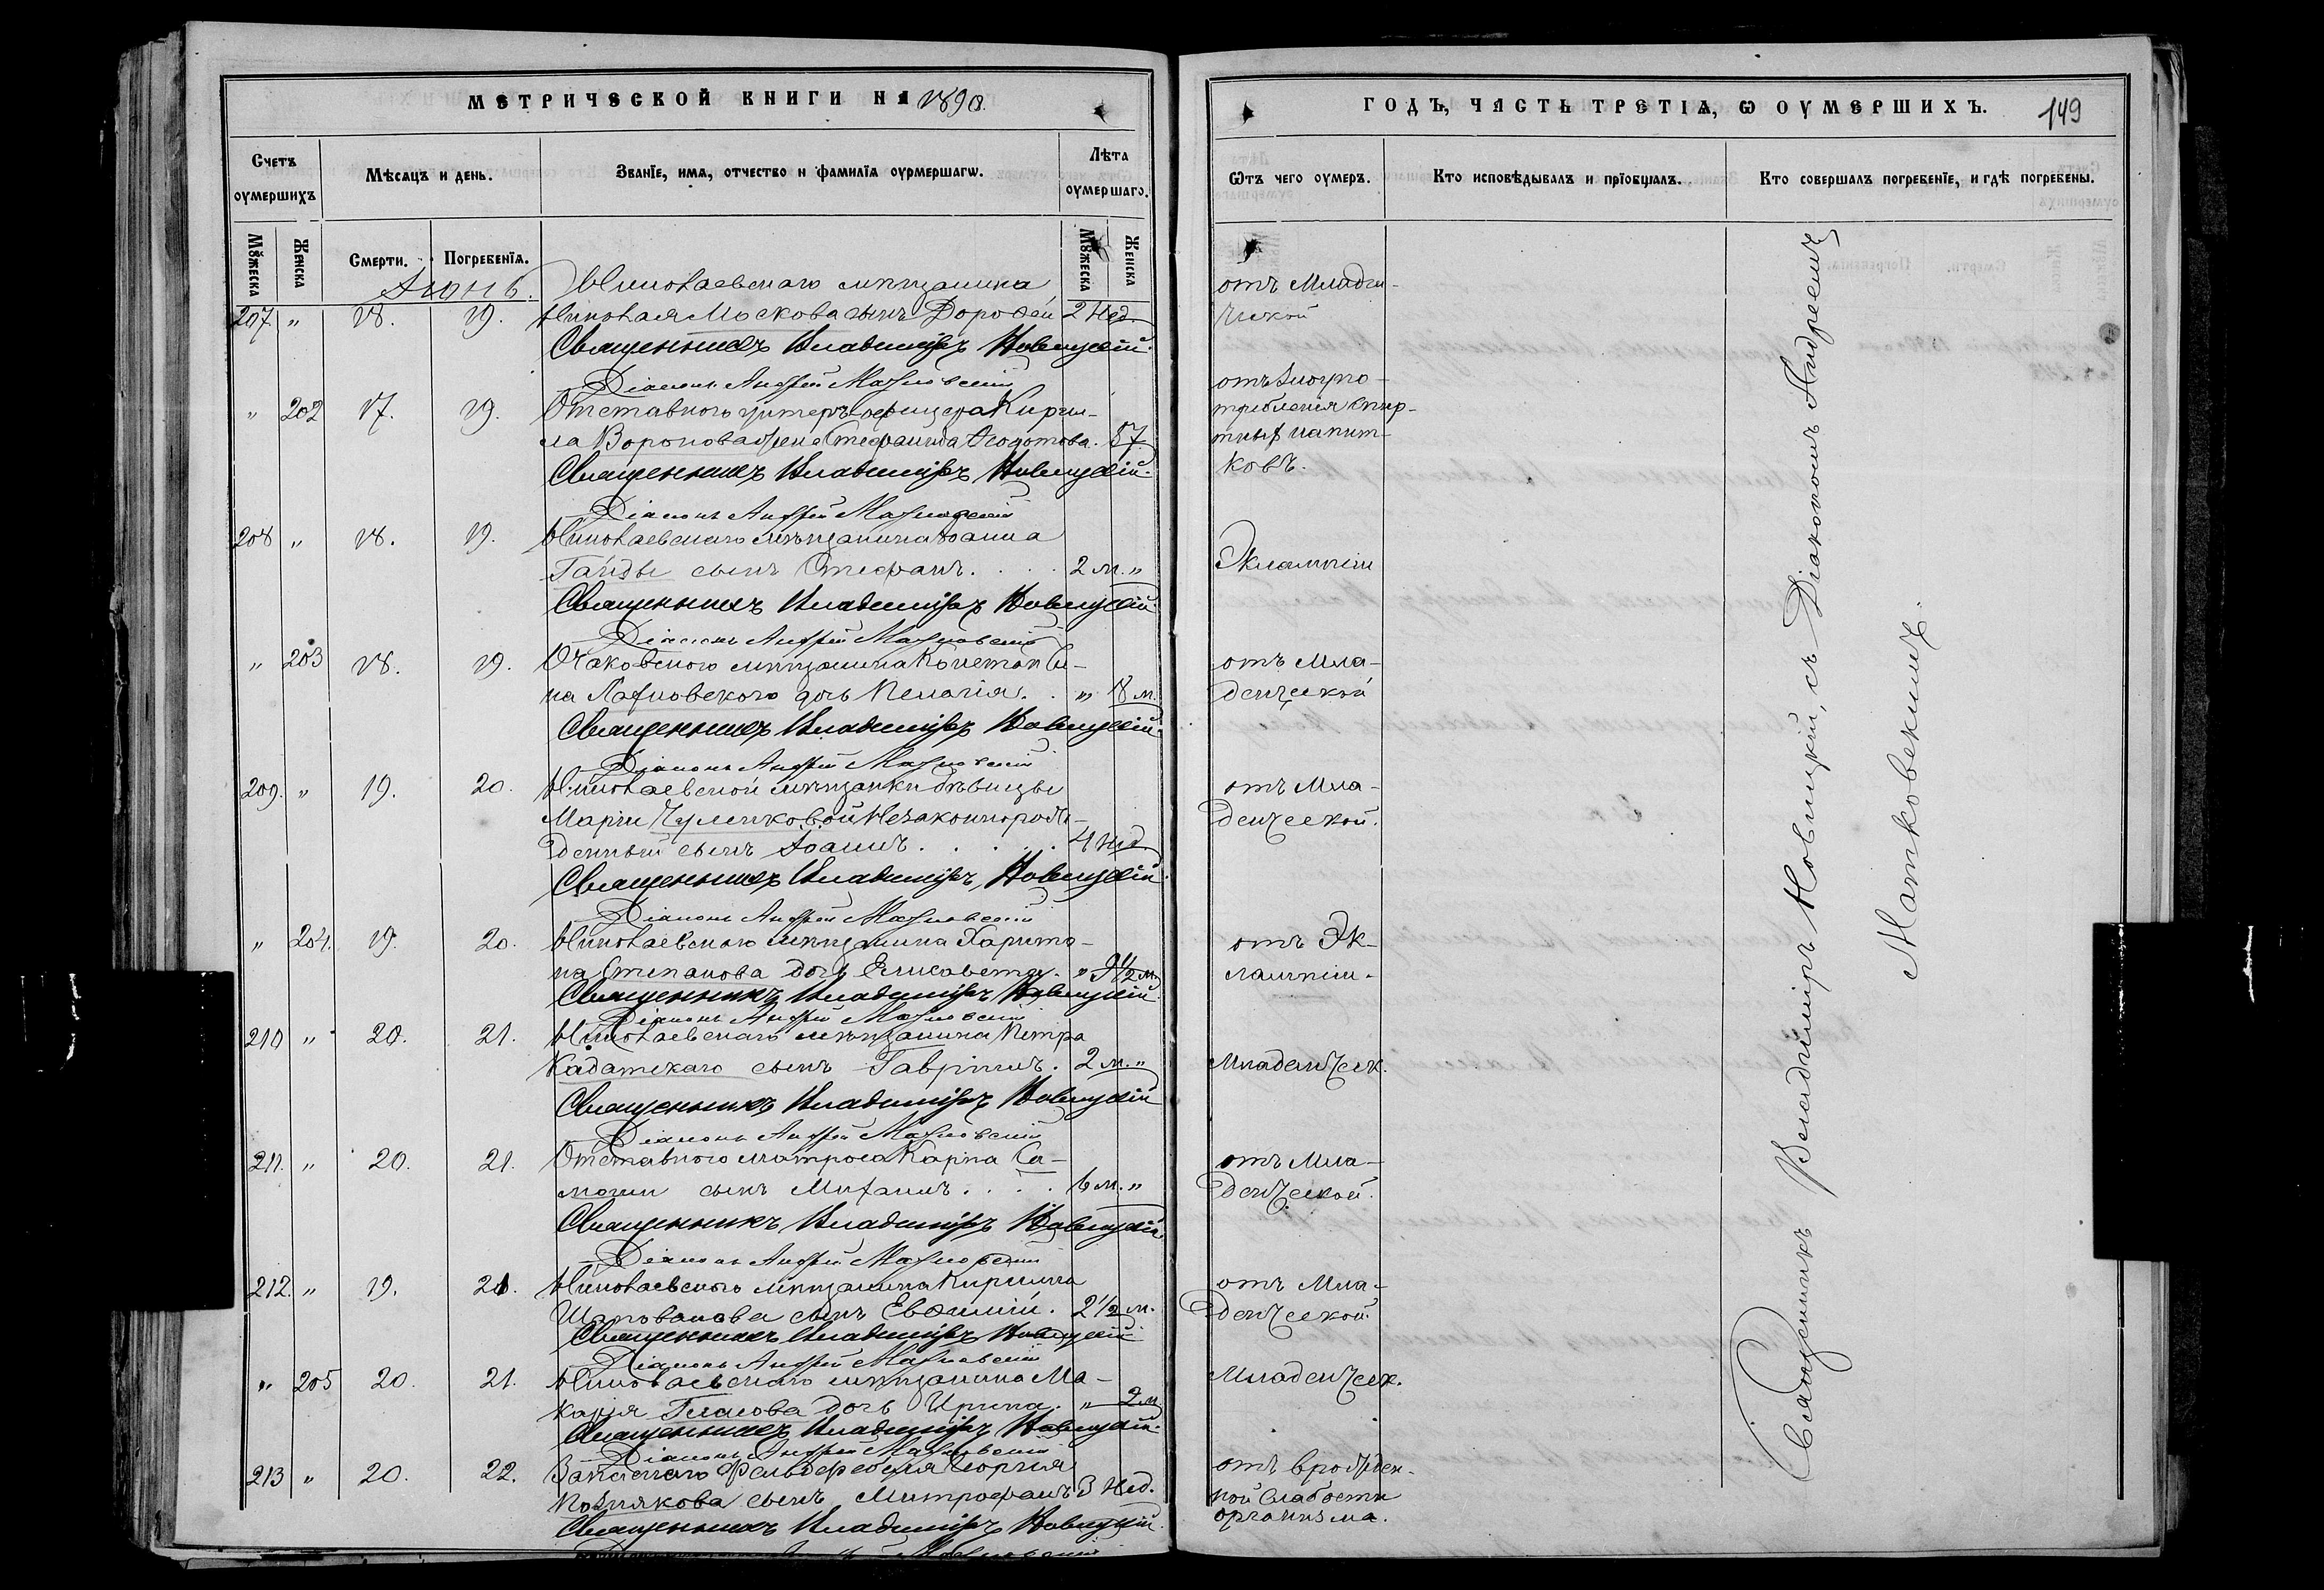 МЕТРИЧЕСКОЙ КНИГИ НА 1890.
Счетъ оумершихъ
Мѣсяцъ и день.
Званїе, имя, отчество и фамилїя оумершагѡ.
Лѣта оумершаго.
Мꙋжеска
Женска
Смерти.
Погребенїя.
Мꙋжеска
Женска
Іюнь.
Николаевскаго мѣщанина
207 " 18. 19. Николая Москова сынъ Дорофей 2 Нед.
Священникъ Владиміръ Новицкій.
Діаконъ Андрей Матковскій
" 202 17. 19. Отставного унтеръ-офицера Кирил-
ла Воронова жена Стефанида Ѳедотова. 57.
Священникъ Владиміръ Новицкій.
Діаконъ Андрей Матковскій
208 " 18. 19. Николаевскаго мѣщанина Іоанна
Гайды сынъ Стефанъ. . . . 2 м. "
Священникъ Владиміръ Новицкій.
Діаконъ Андрей Матковскій
" 203 18. 19. Очаковского мѣщанина Констант-
на дочь Пелагія. . " 18 м.
Священникъ Владиміръ Новицкій.
Діаконъ Андрей Матковскій
209. " 19. 20. Николаевской мѣщанки дѣвицы
Маріи Чуменковой Незаконнорож-
денный сынъ Іоаннъ . . . . . 4 нед.
Священникъ Владиміръ Новицкій.
Діаконъ Андрей Матковскій
" 204. 19. 20. Николаевскаго мѣщанина Харито-
на Степанова дочь Елисавета. " 9½ м.
Священникъ Владиміръ Новицкій.
Діаконъ Андрей Матковскій
210 " 20. 21. Николаевскаго мѣщанина Петра
Кадатскаго сынъ Гавріилъ. 2 м. "
Священникъ Владиміръ Новицкій
Діаконъ Андрей Матковскій
211. " 20. 21. Отставного матроса Карпа Са-
сынъ Михаилъ. . . . 6 м. "
Священникъ Владиміръ Новицкій.
Діаконъ Андрей Матковскій
212. " 19. 21. Николаевскаго мѣщанина Кирилла
Шаповалова сынъ Евфимій. 2½ м.
Священникъ Владиміръ Новицкій
Діаконъ Андрей Матковскій
" 205 20. 21. Николаевскаго мѣщанина Ма-
карія Гласова дочь Ирина. " 2 м.
Священникъ Владиміръ Новицкій.
Діаконъ Андрей Матковскій
213 " 20. 22. Запаснаго Фельдфебеля Георгія
Познякова сынъ Митрофанъ 3 Нед.
Священникъ Владиміръ Новицкій.
ГОДЪ, ЧАСТЬ ТРЕТІЯ, Ѡ ОУМЕРШИХЪ.
149
Ѿтъ чего оумеръ.
Кто исповѣдывалъ и прїобщалъ.
Кто совершалъ погребенїе, и гдѣ погребены.
отъ Младен-
ческой
отъ злоупо-
требленія спир-
тныхъ напит-
ковъ.
Эклампсіи
отъ Мла-
денческой
отъ Мла-
денческой.
отъ Эк-
лампсіи.
Младенческ.
отъ Мла-
денческой.
отъ Мла-
денческой.
Младенческ.
отъ врожден-
ной слабости
организма.
Священникъ Владиміръ Новицкій, съ Діакономъ Андреемъ
Матковскимъ.